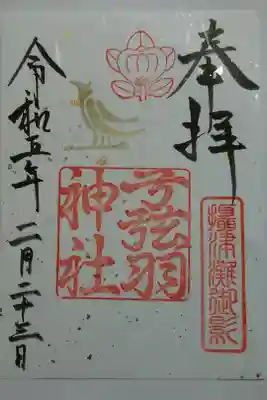 奉拝
攝津灘御影
弓弦羽
神社
令和五年 二月二十三日